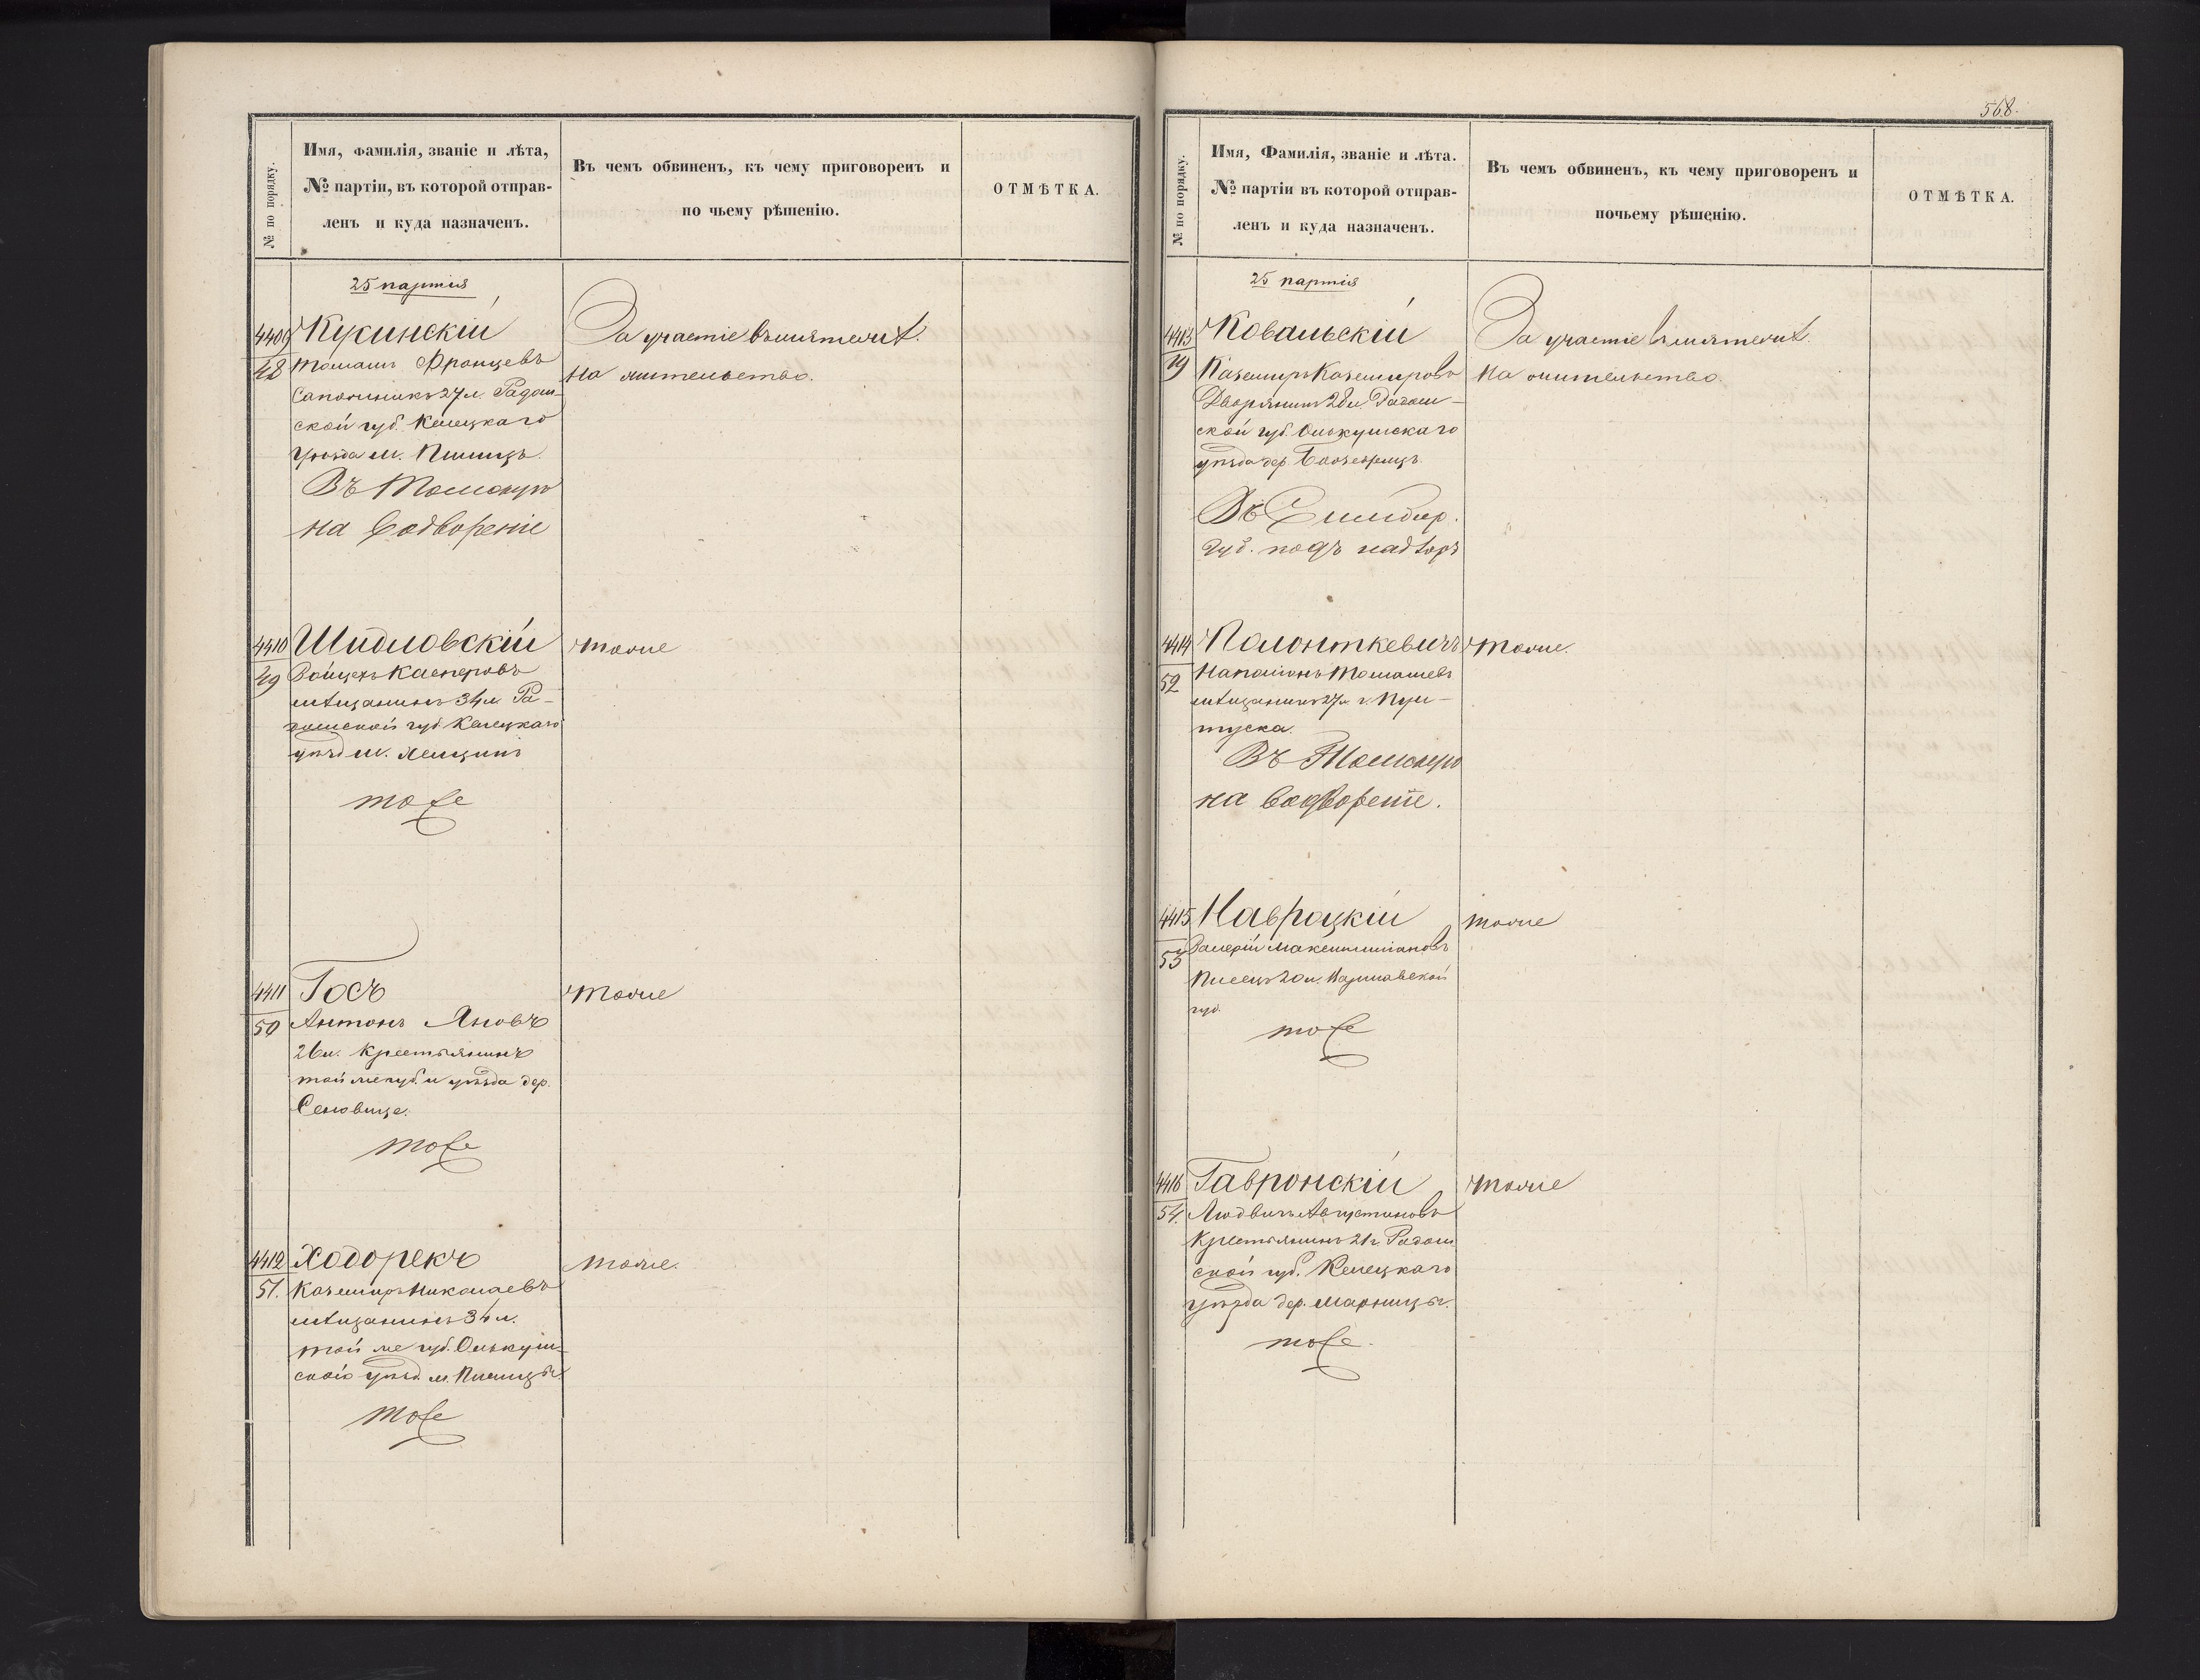 № по порядку.
Имя, фамилія, званіе и лѣта,
№ партіи, въ которой отправ-
ленъ и куда назначенъ.
Въ чемъ обвиненъ, къ чему приговоренъ и
по чьему рѣшенію.
ОТМѢТКА.
25 партія
4409
48
Кукинскій
Томашъ Францевъ
Сапожникъ 27 л. Радом-
ской губ. Келецкаго
уѣзда м. Пилицъ.
Въ Томскую
на водвореніе
За участіе въ мятежѣ.
На жительство.
4410
49
Шидловскій
Войцехъ Касперовъ
мѣщанинъ 34 л. Ра-
домской губ. Келецкаго
уѣзд м.
тоже
тоже
4411
50
Госъ
Антонъ Яновъ
26 л. Крестьянинъ
той же губ. и уѣзда дер.
тоже
тоже
4412
51.
Ходорекъ
Каземиръ Николаевъ
мѣщанинъ 34 л.
той же губ. Олькуш-
скаго уѣзд. м. Пилицы
тоже
тоже.
568.
№ по порядку.
Имя, Фамилія, званіе и лѣта.
№ партіи въ которой отправ-
ленъ и куда назначенъ.
Въ чемъ обвиненъ, къ чему приговоренъ и
почьему рѣшенію.
ОТМѢТКА.
25 партія
4413
19
Ковальскій
Каземиръ Каземировъ
Дворянинъ 28 л. Радом-
ской губ. Олькушскаго
уѣзда дер.
Въ Симбир.
Губ. подъ надзоръ
За участіе въ мятежѣ.
На жительство.
4414
52
Полонткевичъ
Наполіонъ Томашевъ
мѣщанинъ 27 л. г. Пул-
туска.
Въ Томскую
на водвореніе.
тоже.
4415
53
Навроцкій
Валерій Максимиліановъ
Писецъ 20 л. Варшавской
губ.
тоже
тоже
4416
54.
Гавронскій
Людвигъ Августиновъ
Крестьянинъ 21 г. Радом
ской губ. Келецкаго
уѣзда дер.
тоже.
тоже